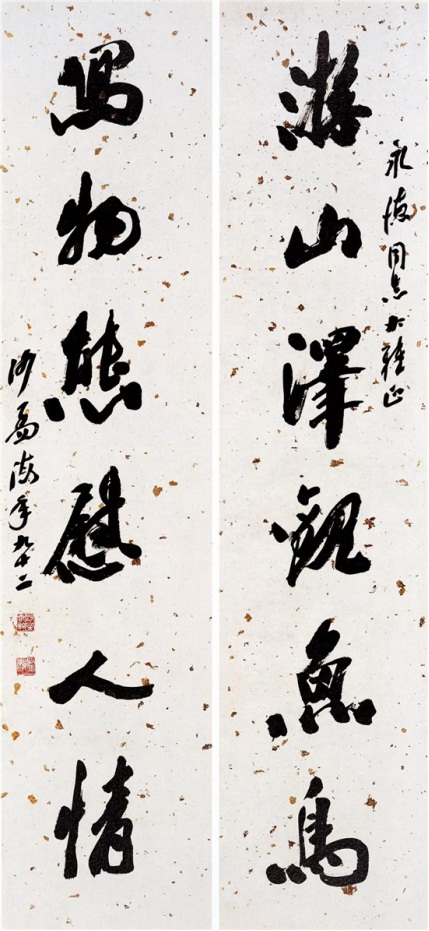 永同志大雅正
游山澤觀魚鳥
寫物態慰人情
沙孟海年九十二